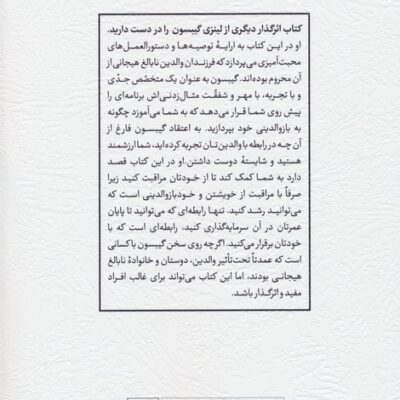 کتاب اثرگذار دیگری از لینزی گیبسون را در دست دارید.
او در این کتاب به ارایهٔ توصیه‌ها و دستورالعمل‌های
محبت‌آمیزی می‌پردازد که فرزندان والدین نابالغ هیجانی از
آن محروم بوده‌اند. گیبسون به عنوان یک متخصّص جدّی
و با تجربه، با مهر و شفقّت مثال‌زدنی‌اش برنامه‌ای را
پیش روی شما قرار می‌دهد که به شما می‌آموزد چگونه
به بازوالدینی خود بپردازید. به اعتقاد گیبسون فارغ از
آن چه در رابطه با والدین‌تان تجربه کرده‌اید، شما ارزشمند
هستید و شایستهٔ دوست داشتن. او در این کتاب قصد
دارد به شما کمک کند تا از خودتان مراقبت کنید زیرا
صرفاً با مراقبت از خویشتن و خودبازوالدینی است که
می‌توانید رشد کنید. تنها رابطه‌ای که می‌توانید تا پایان
عمرتان در آن سرمایه‌گذاری کنید، رابطه‌ای است که با
خودتان برقرار می‌کنید. اگر چه روی سخن گیبسون با کسانی
است که عمدتاً تحت‌تأثیر والدین، دوستان و خانوادهٔ نابالغ
هیجانی بودند، اما این کتاب می‌تواند برای غالب افراد
مفید و اثرگذار باشد.